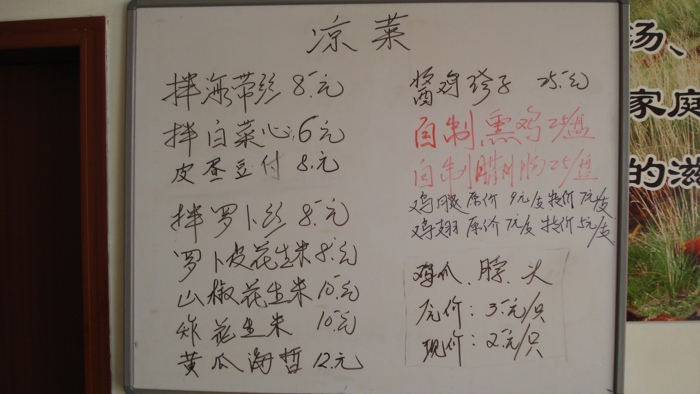 凉菜
拌海带丝 8.元
拌白菜心 6元
皮蛋豆付 8.元
拌罗卜丝 8元
罗卜皮花生米 8元
山椒花生米 10元
炸花生米 10元
黄瓜海哲 12.元
酱鸡珍子 25元
自制熏鸡 25/盘
自制腊肠 25/盘
鸡腿 原价 9元/支 特价 7元/支
鸡翅 原价 7元/支 特价 5元/支
鸡爪、脖、头
元价：3元/只
现价：2元/只
汤、
家庭
的滋